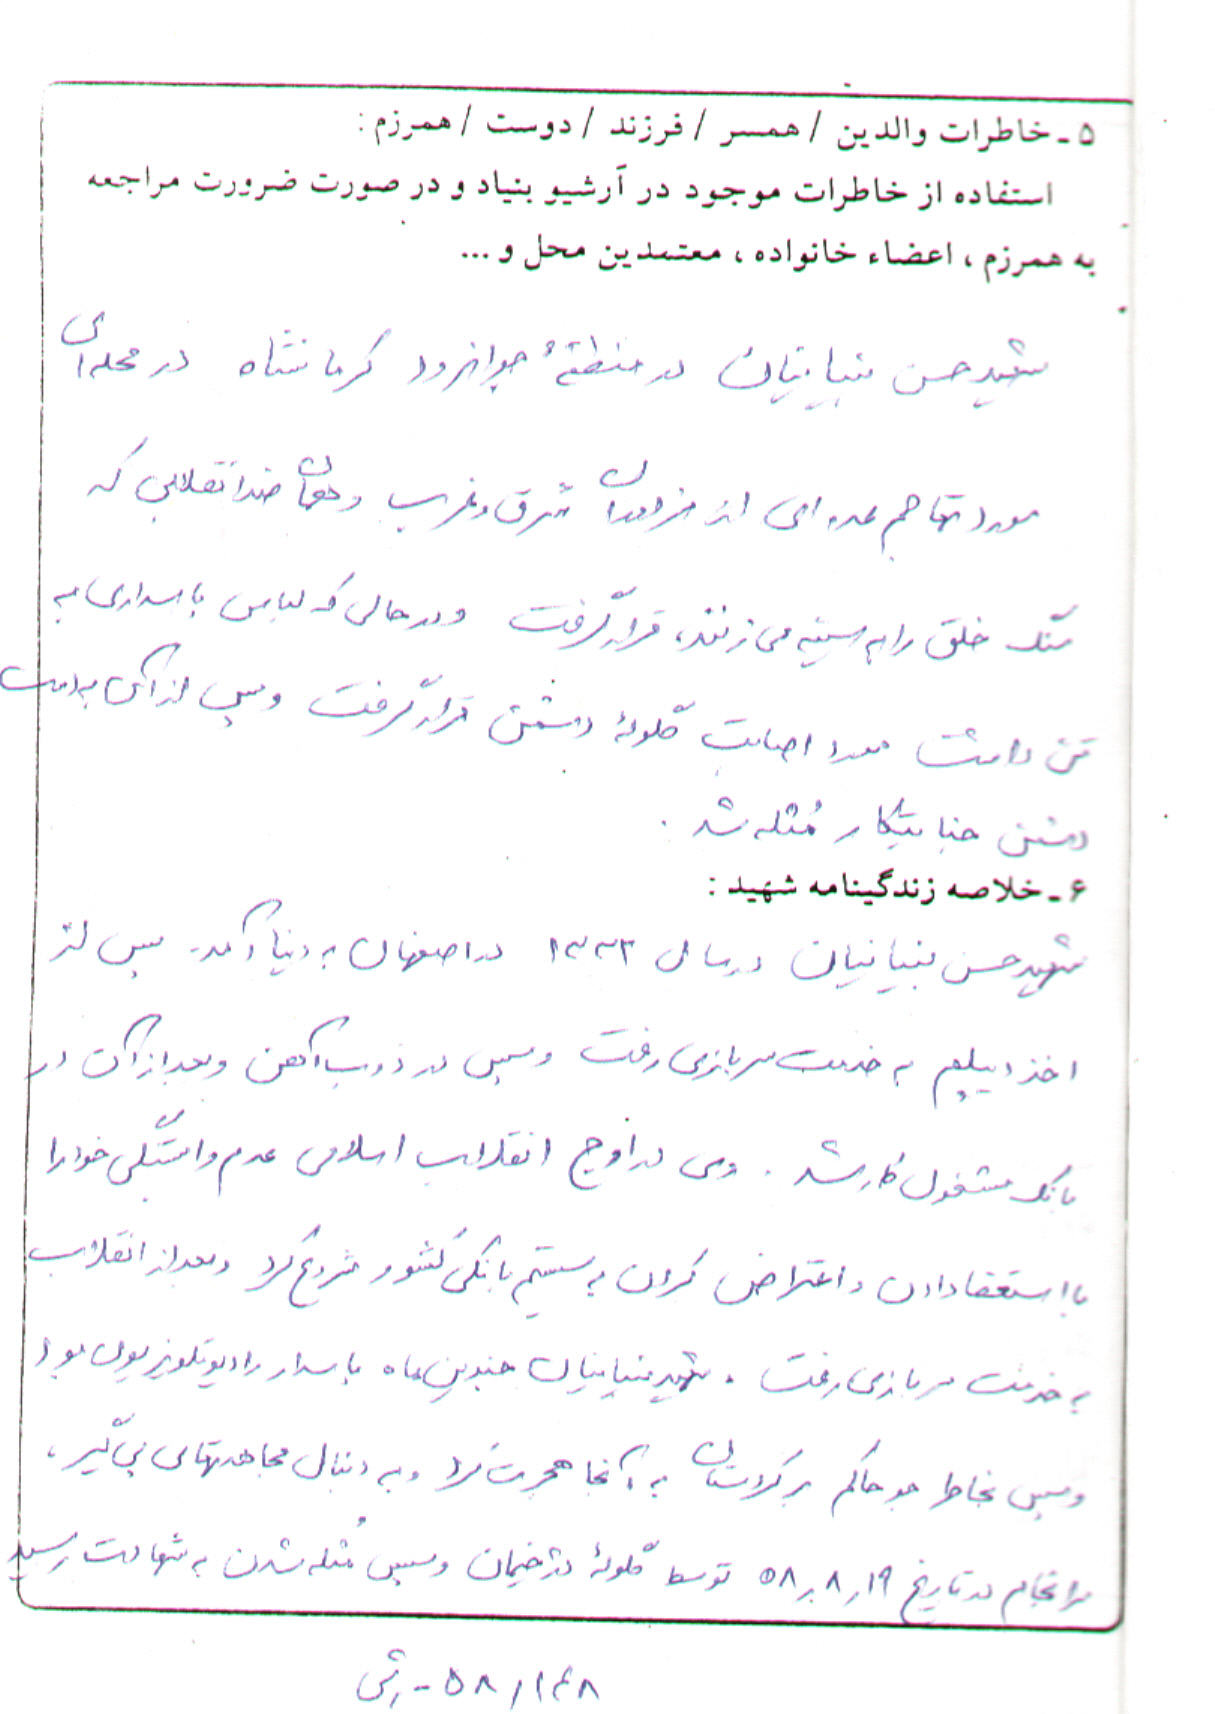 ۵ ـ خاطرات والدین / همسر / فرزند / دوست / همرزم :
استفاده از خاطرات موجود در آرشیو بنیاد و در صورت ضرورت مراجعه
به همرزم ، اعضاء خانواده ، معتمدین محل و ...
شهید حسن بنیانیان در منطقهٔ جوانرود کرمانشاه در محله ای
مورد تهاجم عده ای از مزدوران شرق و غرب و همان ضد انقلابی که
سنگ خلق را به سینه می زنند، قرار گرفت و در حالی که لباس پاسداری به
تن داشت مورد اصابت گلولهٔ دشمن قرار گرفت و پس از آن به دست
دشمن جنایتکار مُثله شد .
۶ ـ خلاصه زندگینامه شهید :
شهید حسن بنیانیان در سال ۱۳۳۲ در اصفهان به دنیا آمد. پس از
اخذ دیپلم به خدمت سربازی رفت و سپس در ذوب آهن و بعد از آن در
بانک مشغول کار شد . وی در اوج انقلاب اسلامی عدم وابستگی خود را
با استعفا دادن و اعتراض کردن به سیستم بانکی کشور شروع کرد و بعد از انقلاب
به خدمت سربازی رفت . شهید بنیانیان چندین ماه پاسدار رادیو تلویزیون بود
و سپس بخاطر جو حاکم بر کردستان به آنجا هجرت کرد و به دنبال مجاهدتهای پی گیر ،
سرانجام در تاریخ ۵۸٫۸٫۱۹ توسط گلولهٔ دژخیمان و سپس مُثله شدن به شهادت رسید